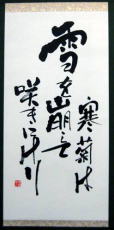 寒菊は
雪を崩して
咲きにけり